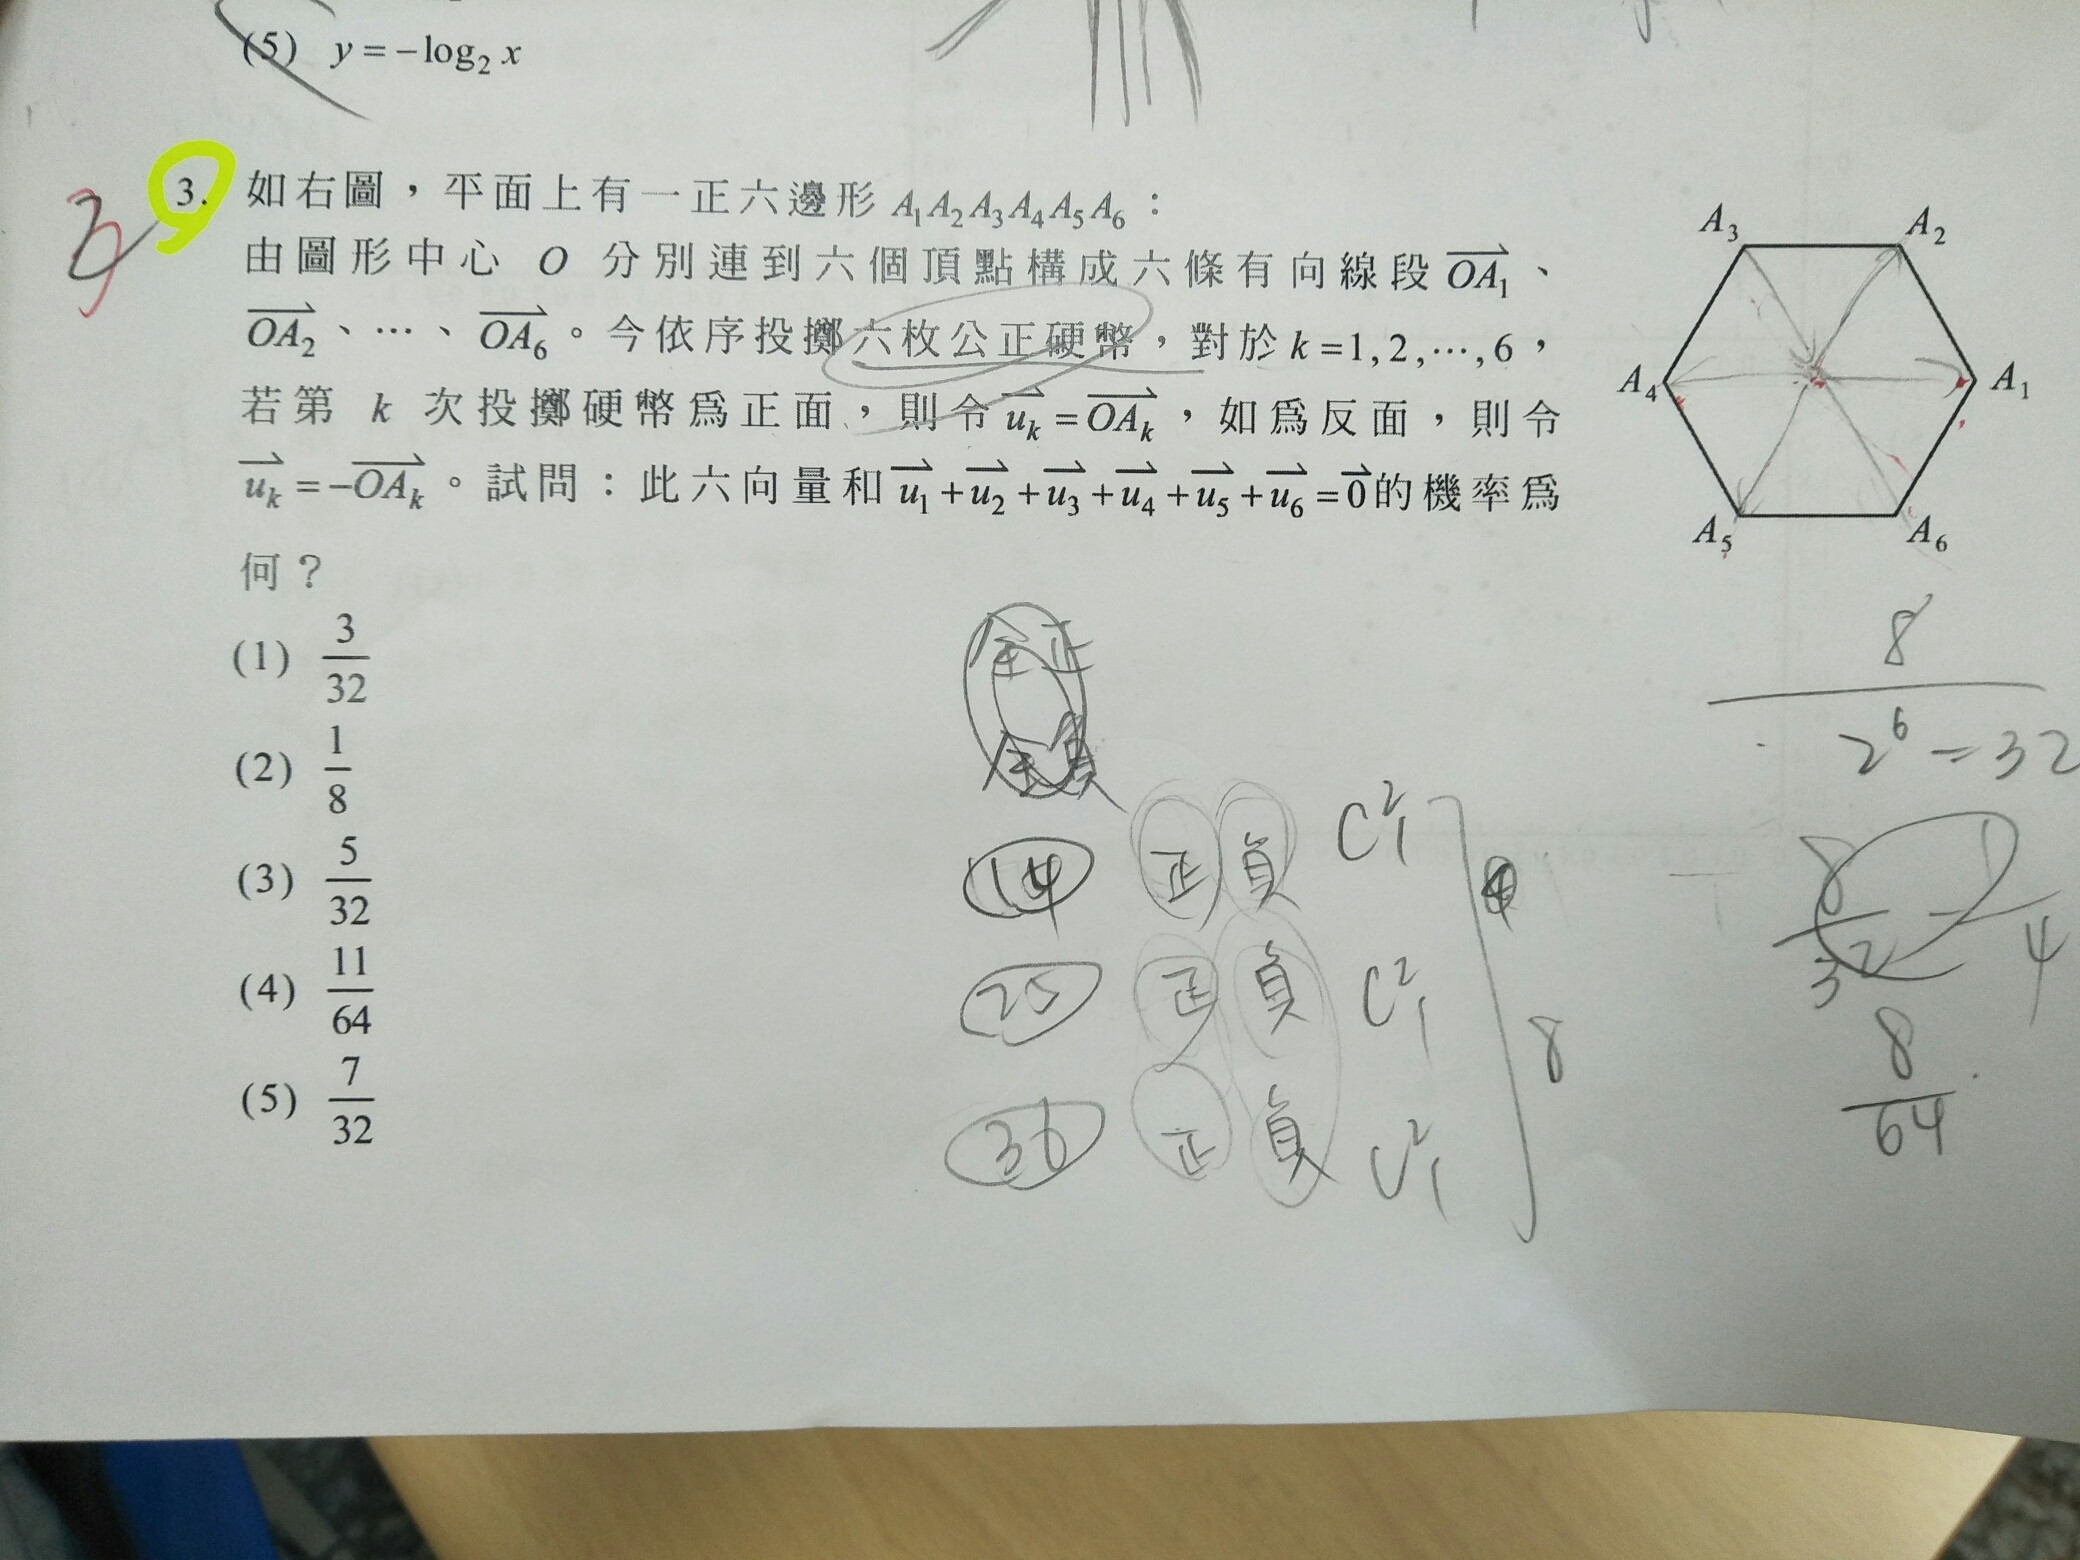 (5) y = −log₂ x
3. 如右圖，平面上有一正六邊形 A₁A₂A₃A₄A₅A₆：
由圖形中心 O 分別連到六個頂點構成六條有向線段 OA₁、
OA₂、⋯、OA₆。今依序投擲六枚公正硬幣，對於 k=1,2,⋯,6，
若第 k 次投擲硬幣為正面，則令 uₖ = OAₖ，如為反面，則令
uₖ = −OAₖ。試問：此六向量和 u₁ + u₂ + u₃ + u₄ + u₅ + u₆ = 0 的機率為
何？
(1) 3/32
(2) 1/8
(3) 5/32
(4) 11/64
(5) 7/32
A₃ A₂
A₄ A₁
A₅ A₆
全正
全負
14 正 負 C²₁
25 正 負 C²₁
36 正 負 C²₁
8
8
2⁶ = 32
8/32 = 1/4
8/64